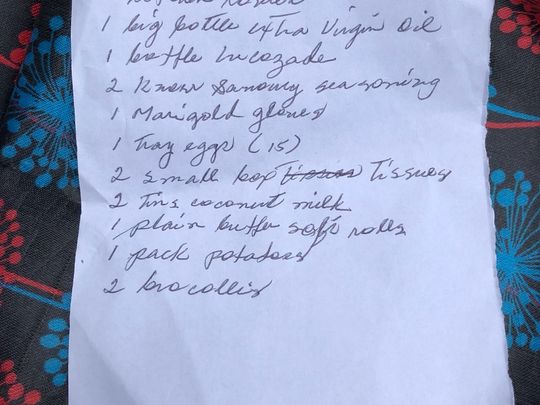 1 big bottle extra Virgin Oil
1 bottle Lucozade
2 Knorr savoury seasoning
1 Marigold gloves
1 Tray eggs (15)
2 small box Tissues
2 Tins coconut milk
1 plain butter soft rolls
1 pack potatoes
2 brocollis